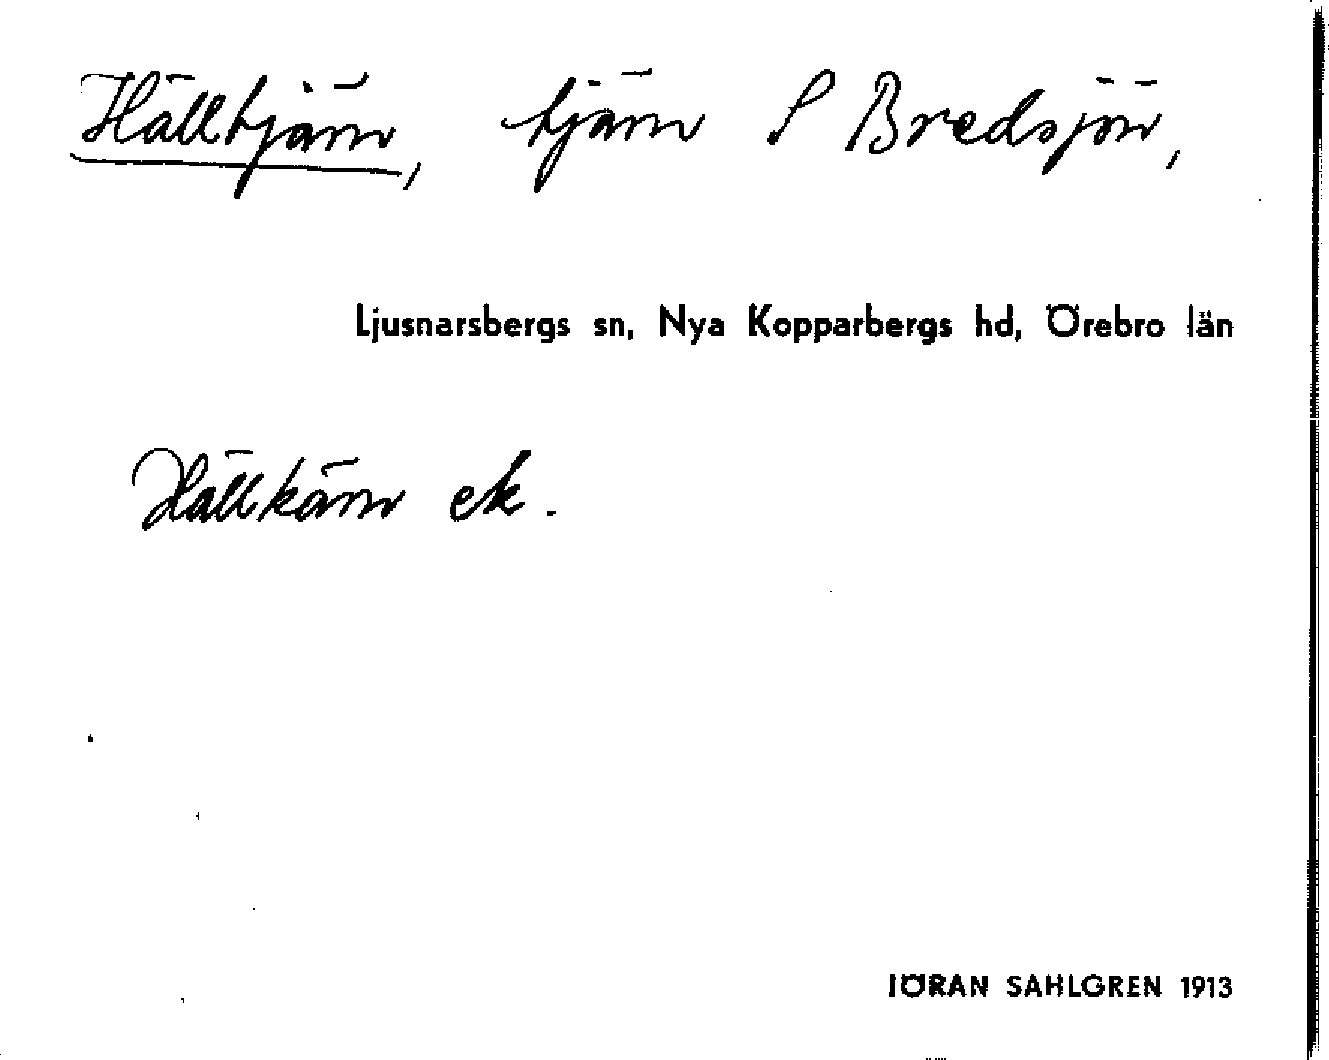 Hälltjärn, tjärn S Bredsjön,
Ljusnarsbergs sn, Nya Kopparbergs hd, Örebro län
Hällkärn ek.
JÖRAN SAHLGREN 1913